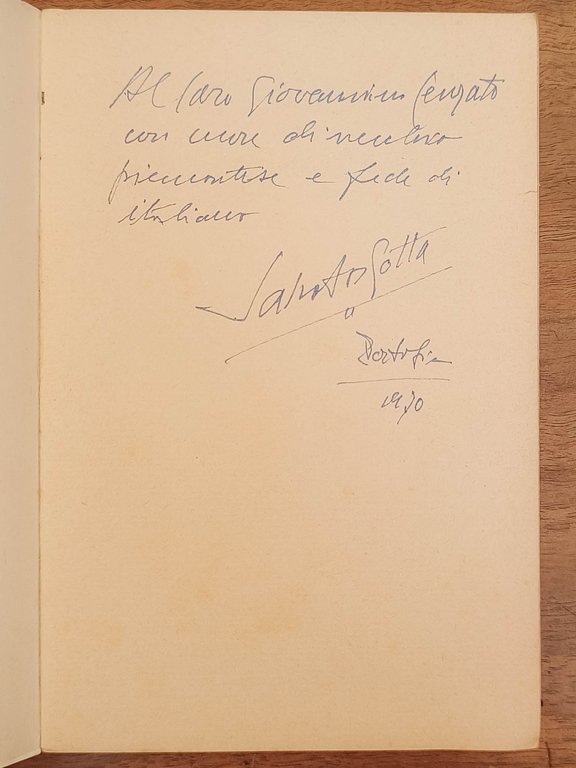 Al caro Giovannino Cenzato
con cuore di vecchio
piemontese e fede di
italiano
Salvator Gotta
Portofino
1970